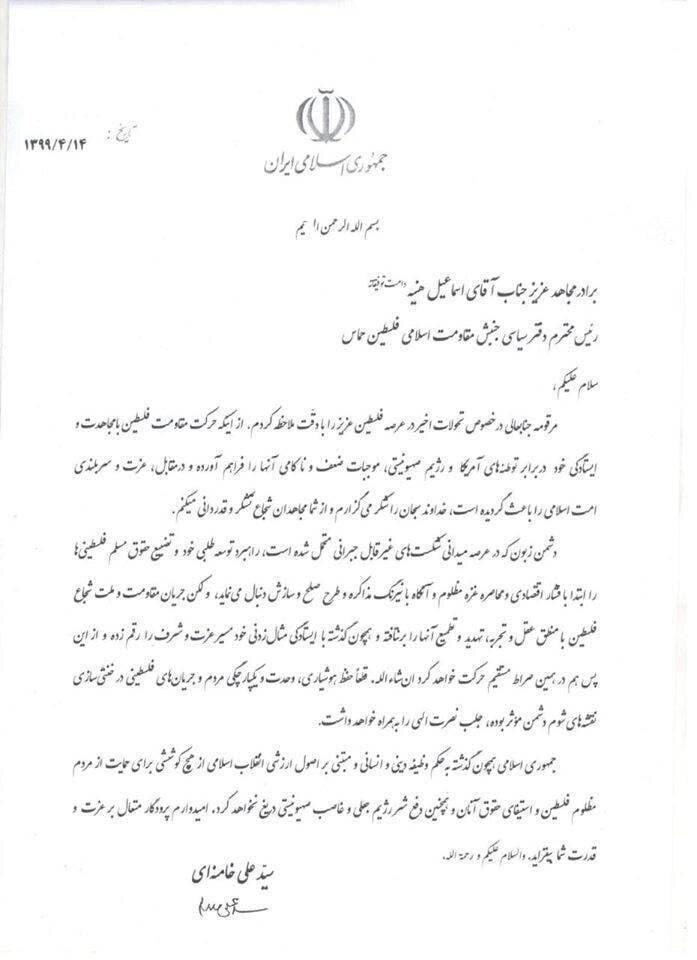 جمهوری اسلامی ایران
تاریخ : ۱۳۹۹/۴/۱۴
بسم الله الرحمن
برادر مجاهد عزیز جناب آقای اسماعیل هنیه دامت توفیقاته
رئیس محترم دفتر سیاسی جنبش مقاومت اسلامی فلسطین حماس
سلام علیکم،
مرقومه جنابعالی در خصوص تحولات اخیر در عرصه فلسطین عزیز را با دقّت ملاحظه کردم. از اینکه حرکت مقاومت فلسطین با مجاهدت و
ایستادگی خود در برابر توطئه‌های آمریکا و رژیم صهیونیستی، موجبات ضعف و ناکامی آنها را فراهم آورده و در مقابل، عزت و سربلندی
امت اسلامی را باعث گردیده است، خداوند سبحان را شکر می‌گزارم و از شما مجاهدان شجاع تشکر و قدردانی میکنم.
دشمن زبون که در عرصه میدانی شکست‌های غیرقابل جبرانی متحمل شده است، راهبرد توسعه طلبی خود و تضییع حقوق مسلم فلسطینی‌ها
را ابتدا با فشار اقتصادی و محاصره غزه مظلوم و آنگاه با نیرنگ مذاکره و طرح صلح و سازش دنبال می‌نماید، ولکن جریان مقاومت و ملت شجاع
فلسطین با منطق عقل و تجربه، تهدید و تطمیع آنها را برنتافته و همچون گذشته با ایستادگی مثال زدنی خود مسیر عزت و شرف را رقم زده و از این
پس هم در همین صراط مستقیم حرکت خواهد کرد ان‌شاءالله. قطعاً حفظ هوشیاری، وحدت و یکپارچگی مردم و جریان‌های فلسطینی در خنثی‌سازی
نقشه‌های شوم دشمن مؤثر بوده، جلب نصرت الهی را به همراه خواهد داشت.
جمهوری اسلامی همچون گذشته به حکم وظیفه دینی و انسانی و مبتنی بر اصول ارزشی انقلاب اسلامی از هیچ کوششی برای حمایت از مردم
مظلوم فلسطین و استیفای حقوق آنان و همچنین دفع شر رژیم جعلی و غاصب صهیونیستی دریغ نخواهد کرد. امیدوارم پروردگار متعال بر عزت و
قدرت شما بیفزاید. والسلام علیکم و رحمة الله.
سیّد علی خامنه‌ای